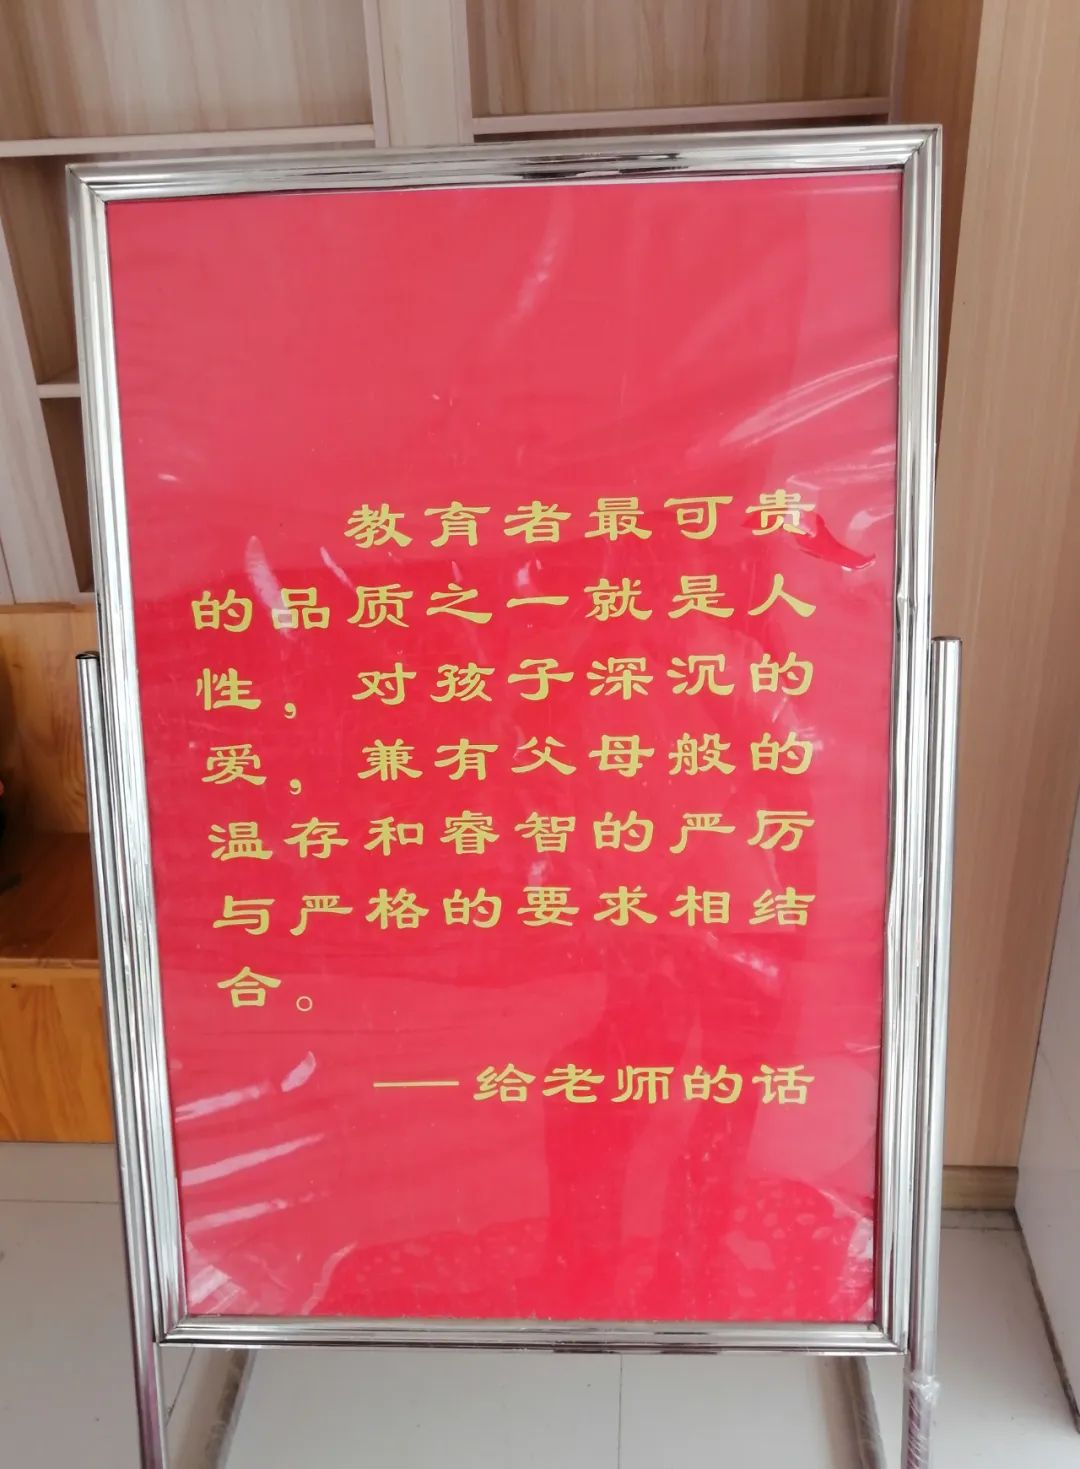 教育者最可贵
的品质之一就是人
性，对孩子深沉的
爱，兼有父母般的
温存和睿智的严厉
与严格的要求相结
合。
——给老师的话